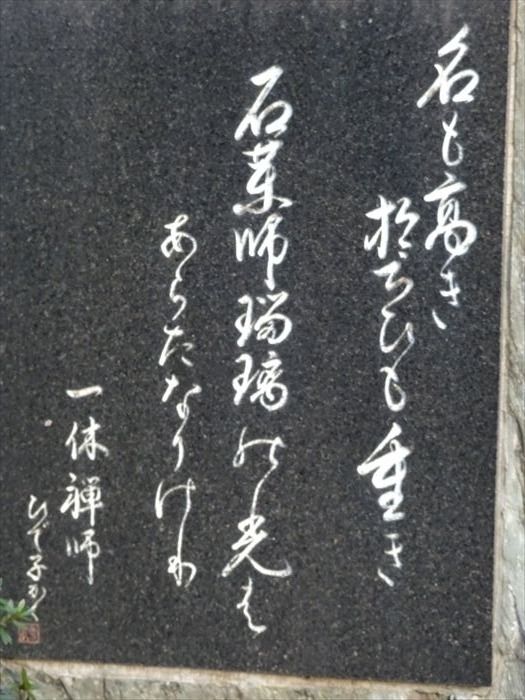 名も高き
誓ひも重き
石薬師瑠璃の光は
あらたなりけり
一休禅師
ひで子かく